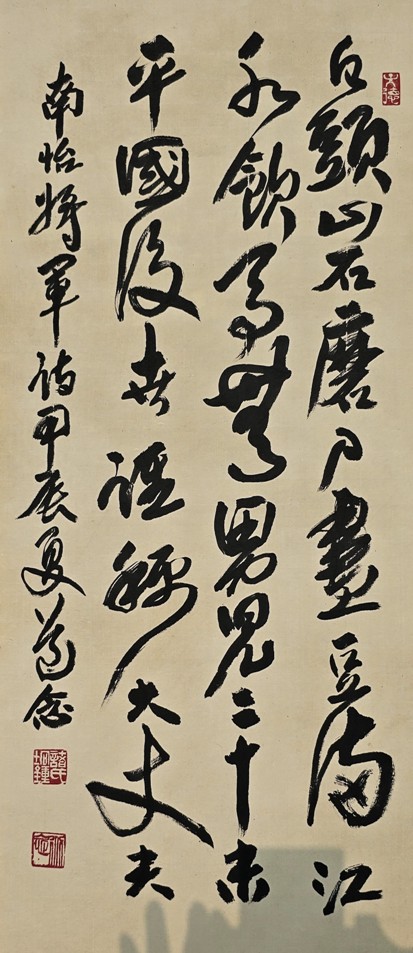 白頭山石磨刀盡豆滿江
水飮馬無男兒二十未
平國後世誰稱大丈夫
南怡將軍詩甲辰夏念